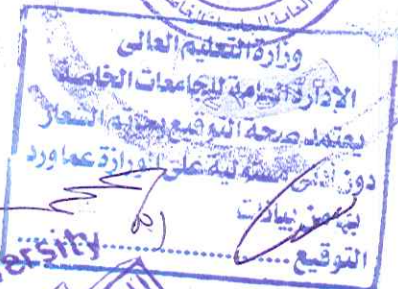 وزارة التعليم العالى
الإدارة العامة للجامعات الخاصة
يعتمد صحة التوقيع بخاتم الشعار
دون أدنى مسئولية على الوزارة عما ورد
به من بيانات
التوقيع ....................
ersity